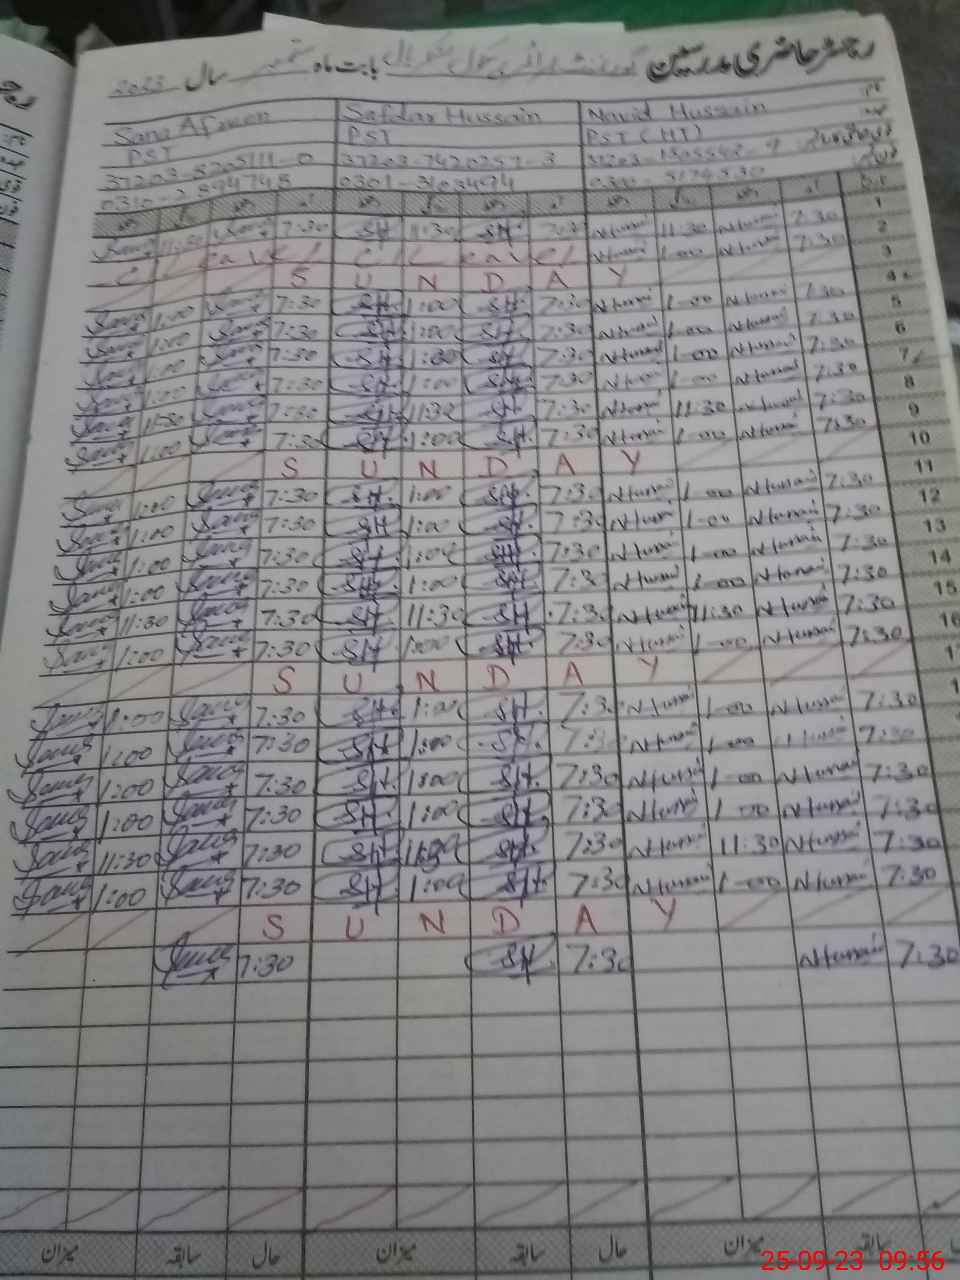 رجسٹر حاضری مدرسین گورنمنٹ پرائمری سکول بابت ماہ ستمبر سال 2023
Navid Hussain Safdar Hussain Sana Afreen
PST (HT) PST PST
0301-3103494
1
Sana 11:30 Sana 7:30 SH 11:30 SH 7:30 NHussain 11:30 NHussain 7:30 2
C/Leave C/Leave NHussain 1-00 NHussain 7:30 3
S U N D A Y 4
Sana 1:00 Sana 7:30 SH 1:00 SH 7:30 NHussain 1-00 NHussain 7:30 5
Sana 1:00 Sana 7:30 SH 1:00 SH 7:30 NHussain 1-00 NHussain 7:30 6
Sana 1:00 Sana 7:30 SH 1:00 SH 7:30 NHussain 1-00 NHussain 7:30 7
Sana 1:00 Sana 7:30 SH 1:00 SH 7:30 NHussain 1-00 NHussain 7:30 8
Sana 11:30 Sana 7:30 SH 11:30 SH 7:30 NHussain 11:30 NHussain 7:30 9
Sana 1:00 Sana 7:30 SH 1:00 SH 7:30 NHussain 1-00 NHussain 7:30 10
S U N D A Y 11
Sana 1:00 Sana 7:30 SH 1:00 SH 7:30 NHussain 1-00 NHussain 7:30 12
Sana 1:00 Sana 7:30 SH 1:00 SH 7:30 NHussain 1-00 NHussain 7:30 13
Sana 1:00 Sana 7:30 SH 1:00 SH 7:30 NHussain 1-00 NHussain 7:30 14
Sana 1:00 Sana 7:30 SH 1:00 SH 7:30 NHussain 1-00 NHussain 7:30 15
Sana 11:30 Sana 7:30 SH 11:30 SH 7:30 NHussain 11:30 NHussain 7:30 16
Sana 1:00 Sana 7:30 SH 1:00 SH 7:30 NHussain 1-00 NHussain 7:30
S U N D A Y
Sana 1:00 Sana 7:30 SH 1:00 SH 7:30 NHussain 1-00 NHussain 7:30
Sana 1:00 Sana 7:30 SH 1:00 SH 7:30 NHussain 1-00 NHussain 7:30
Sana 1:00 Sana 7:30 SH 1:00 SH 7:30 NHussain 1-00 NHussain 7:30
Sana 1:00 Sana 7:30 SH 1:00 SH 7:30 NHussain 1-00 NHussain 7:30
Sana 11:30 Sana 7:30 SH 11:30 SH 7:30 NHussain 11:30 NHussain 7:30
Sana 1:00 Sana 7:30 SH 1:00 SH 7:30 NHussain 1-00 NHussain 7:30
S U N D A Y
Sana 7:30 SH 7:30 NHussain 7:30
سابقہ میزان حال سابقہ میزان حال سابقہ میزان
25-09-23 09:56